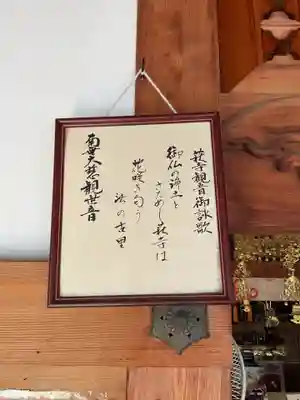 萩寺観音御詠歌
御仏の浄土と
さためし萩寺は
花咲き匂う
法の古里
南無大慈観世音